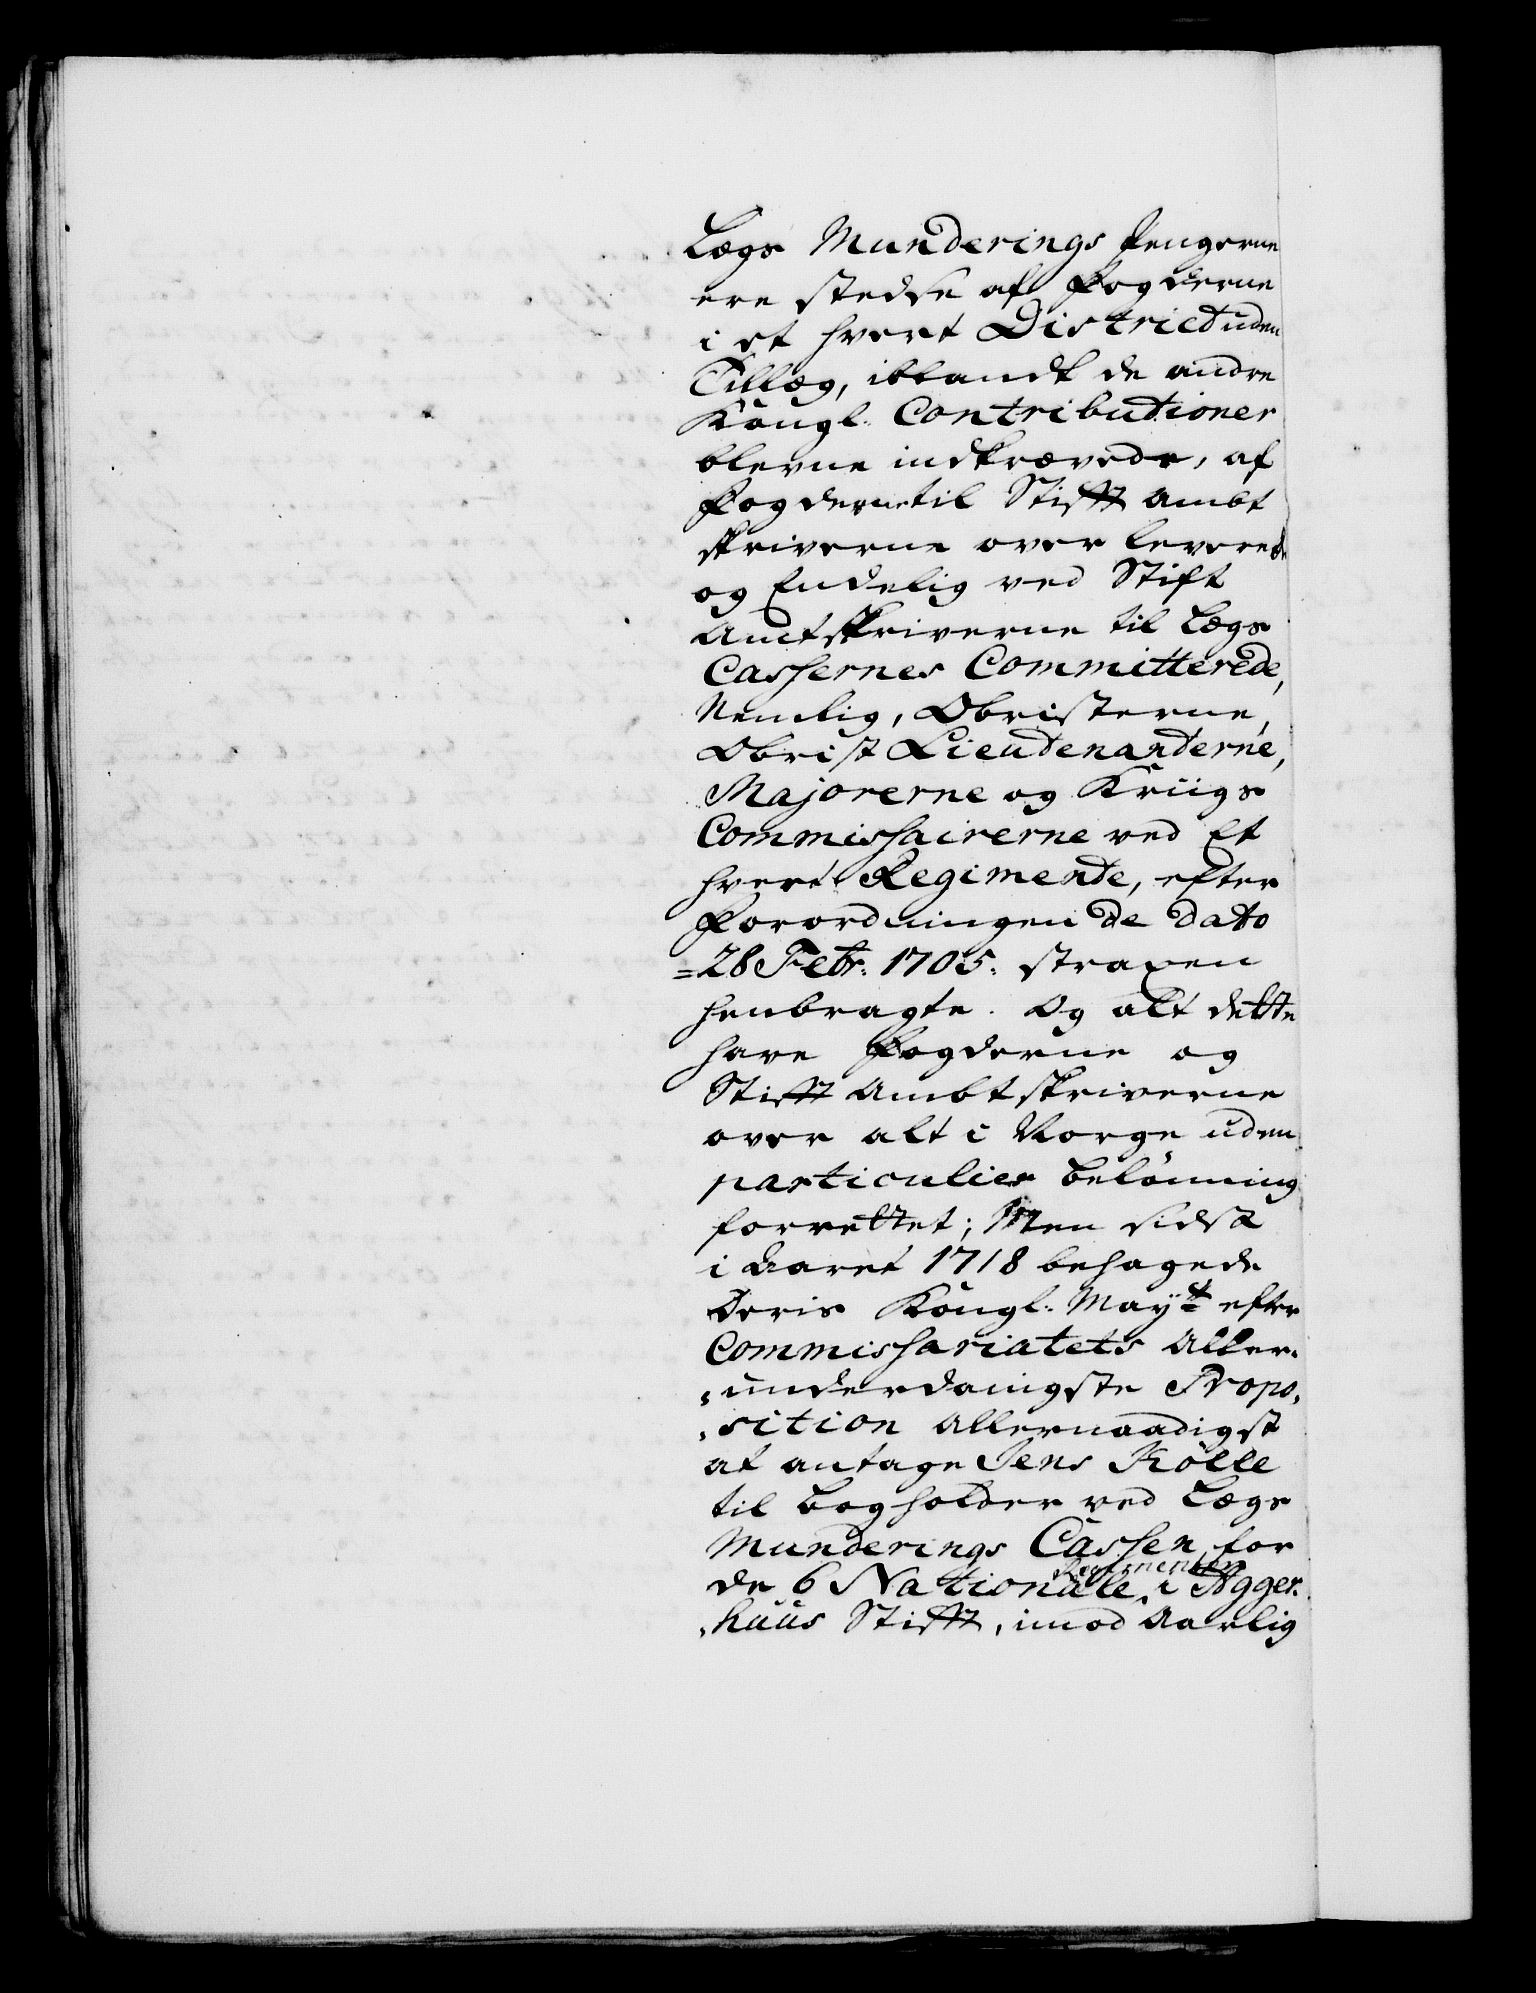 Lægs Munderings Pengerne
ere stedse af Fogderne
i et hvert District uden
Tillæg, iblandt de andre
Kongl. Contributioner
blevne indkrævede, af
Fogderne til Stifft Ambt
skriverne over leverede
og Endelig ved Stift
Amtskriverne til Lægs
Casserne Committerede,
Nemlig, Obristerne,
Obrist Lieutenanterne,
Majorerne og Kriigs
Commissairerne ved Et
hvert Regimente, efter
Forordningen de dato
=28 Febr: 1705. straxen
henbragte. Og alt dette
have Fogderne og
Stifft Ambtskriverne
over alt i Norge uden
particulier belönning
forrettet; Men sidst
i Aaret 1718 behagede
Deris Kongl: Mayt efter
Commissariatets Aller-
-underdanigste Propo-
-sition Allernaadigst
at antage Jens Kölle
til bogholder ved Lægs
Munderings Cassen for
de 6 Nationale Regimenter i Agger-
-huus Stifft, imod Aarlig